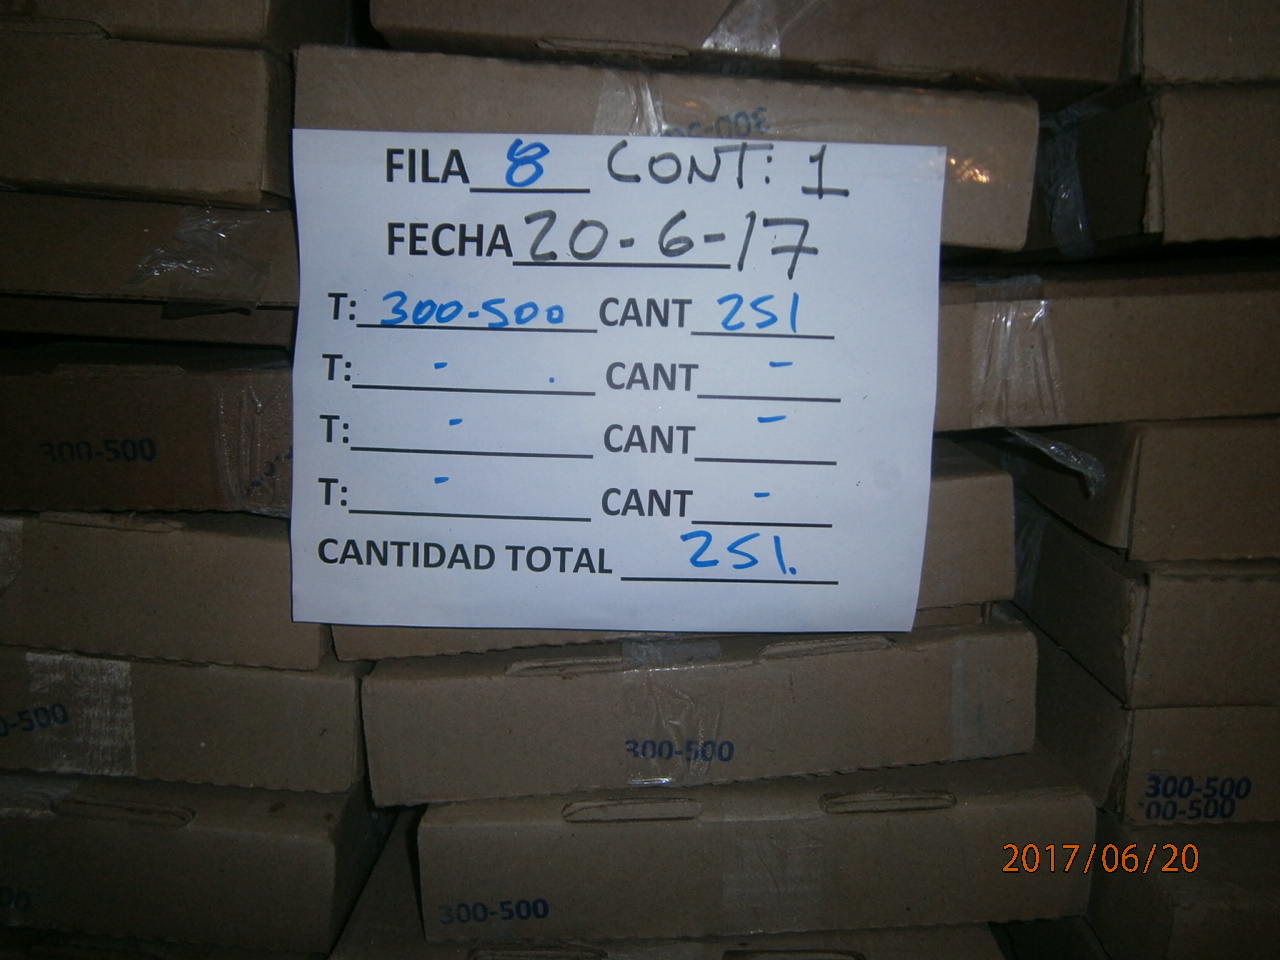 FILA 8 CONT: 1
FECHA 20-6-17
T: 300-500 CANT 251
T: - . CANT -
T: - CANT -
T: - CANT -
CANTIDAD TOTAL 251.
300-500
300-500
300-500
00-500
300-500
2017/06/20